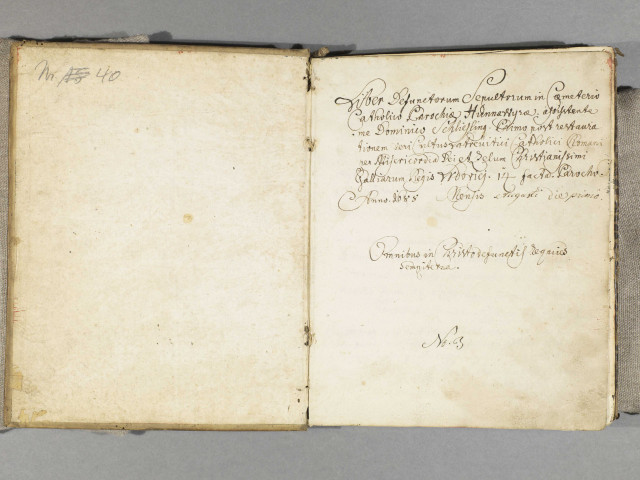 Nr. 40
Liber Defunctorum Sepultorum in Cœmeterio
Catholico Parochiæ Hunnawyræ, assistente
me Dominico Schliessing Primo post restaura
tionem veri Cultus Catholici Romani
per Misericordia Dei et Zelum Christianissimi
Galliarum Regis 14 Parocho.
Anno. Mensis Augusti die primo.
Omnibus in Christo defunctis Requies
sempiterna.
No. 3